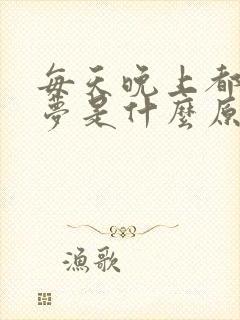 每天晚上都
夢是什麼原
漁歌